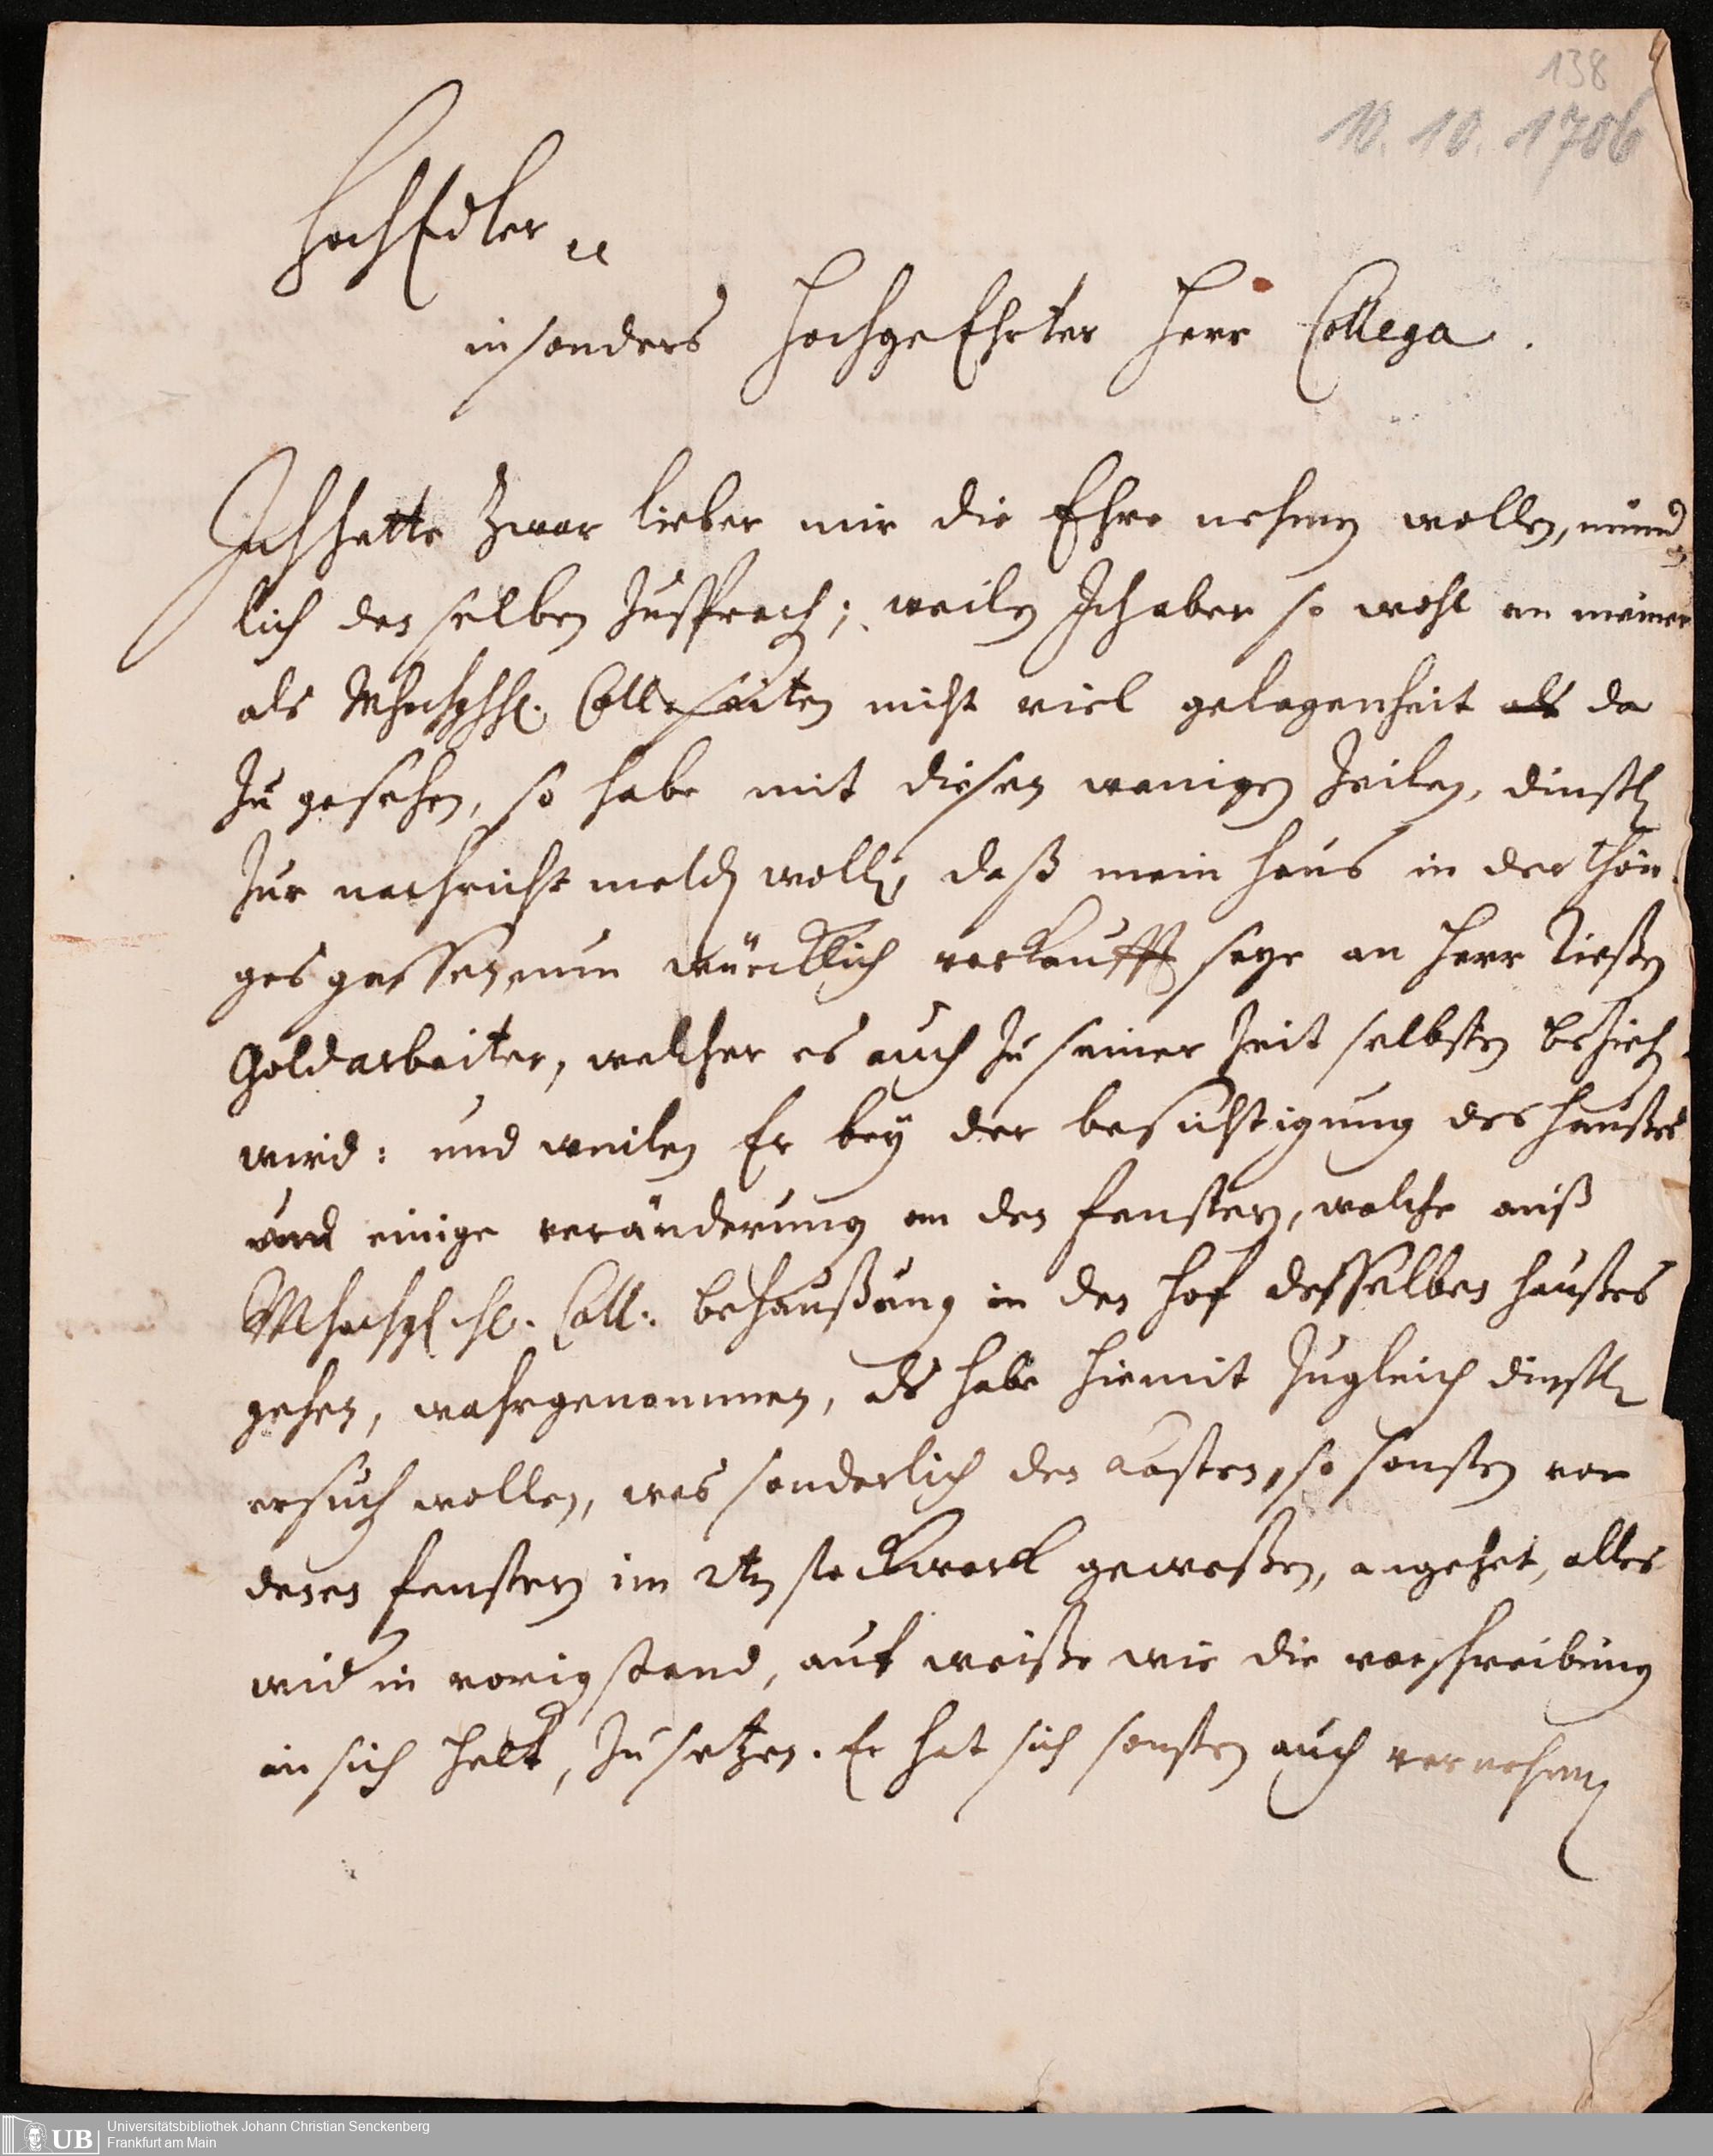 138
10. 10. 1706
HochEdler
insonders HochgeEhrter Herr Collega.
Ich hette Zwar lieber mir die Ehre nehmen wollen, münd-
lich denselben Zusprach; weilen Ich aber so wohl an meiner
als Collseiten nicht viel gelegenheit als da
Zu gesehen, so habe mit diesen wenigen Zeilen, dinstl
Zur nachricht melden wollen, daß mein Haus in der Thön
gesgassen, nun würcklich verkaufft seye an Herr
Goldarbeiter, welcher es auch Zu seiner Zeit selbsten beziehen
wird: und weilen Er bey der besichtigung des Haußes
und einige veränderung an den fenstern, welche auß
Coll: behaußung in den Hof desselben Haußes
gehen, wahrgenommen, als habe hiemit Zugleich dinstl
ersuchen wollen, was sonderlich den Kasten, so sonsten vor
denen fenstern im 2ten stockwerck geweßen, angehet, alles
wider in vorigen stand, auf weiße wie die verschreibung
in sich helt, Zu setzen. Er hat sich sonsten auch vernehmen
UB
Universitätsbibliothek Johann Christian Senckenberg
Frankfurt am Main